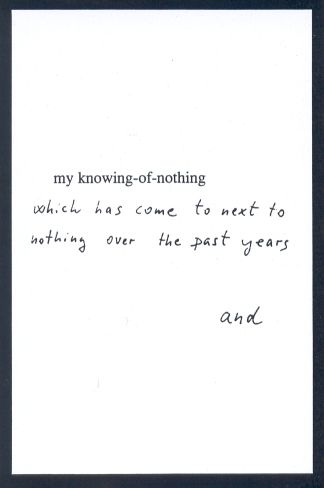 my knowing-of-nothing
which has come to next to
nothing over the past years
and